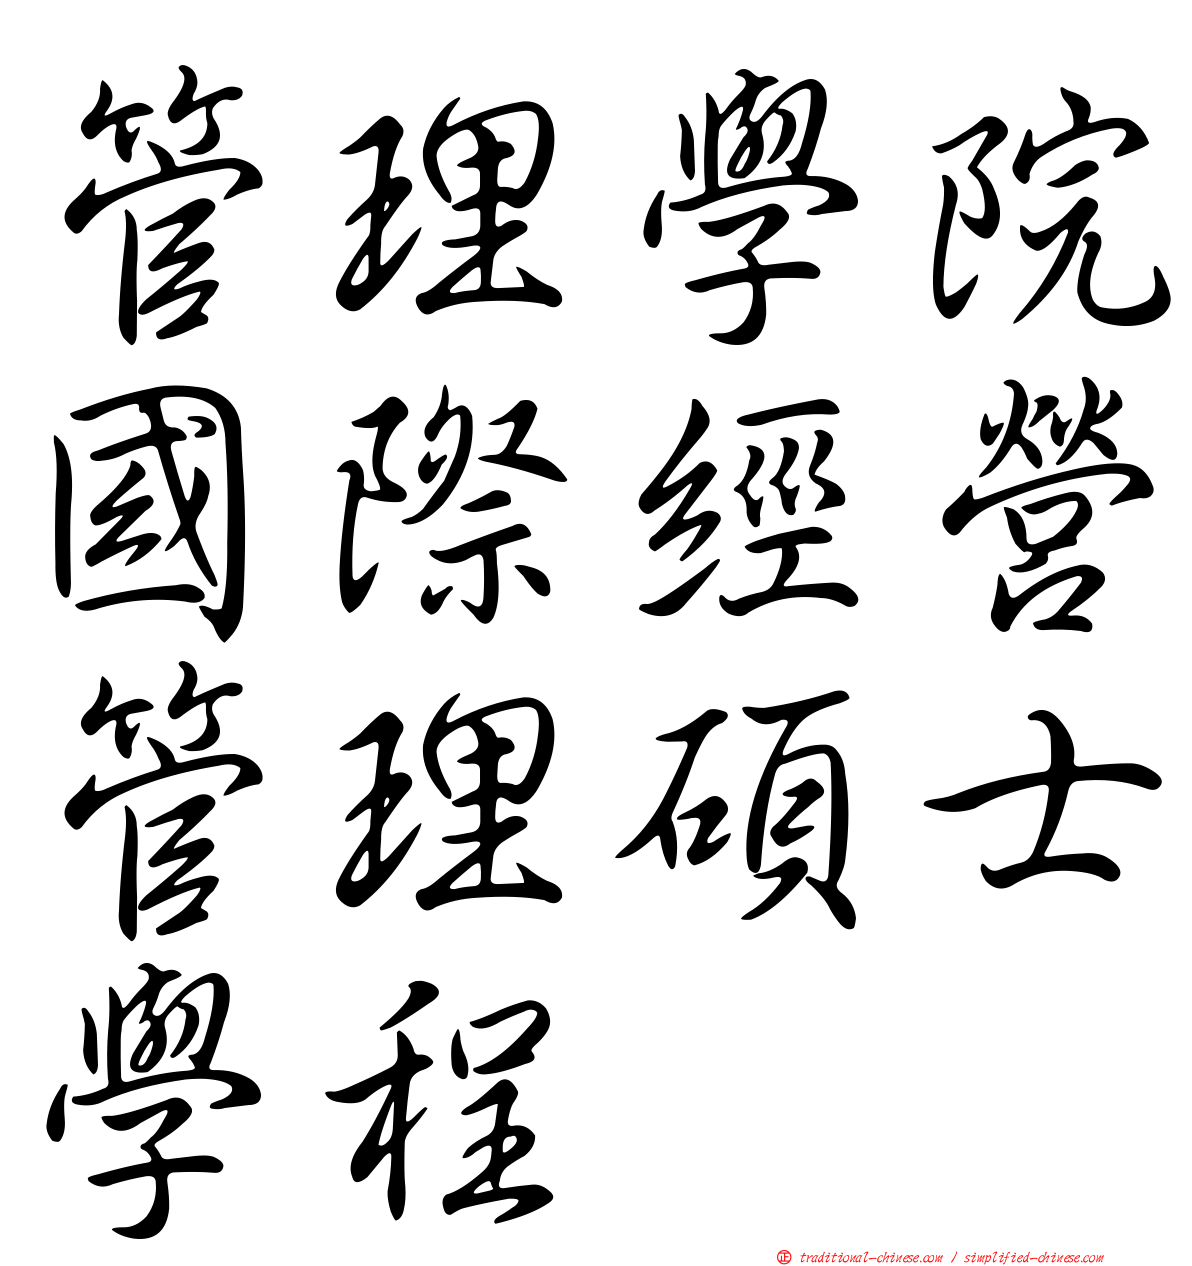 管理學院
國際經營
管理碩士
學程
正 traditional-chinese.com / simplified-chinese.com